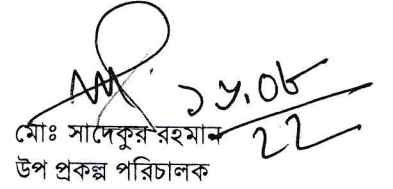 ১৮.০৮
২২
মোঃ সাদেকুর রহমান
উপ প্রকল্প পরিচালক